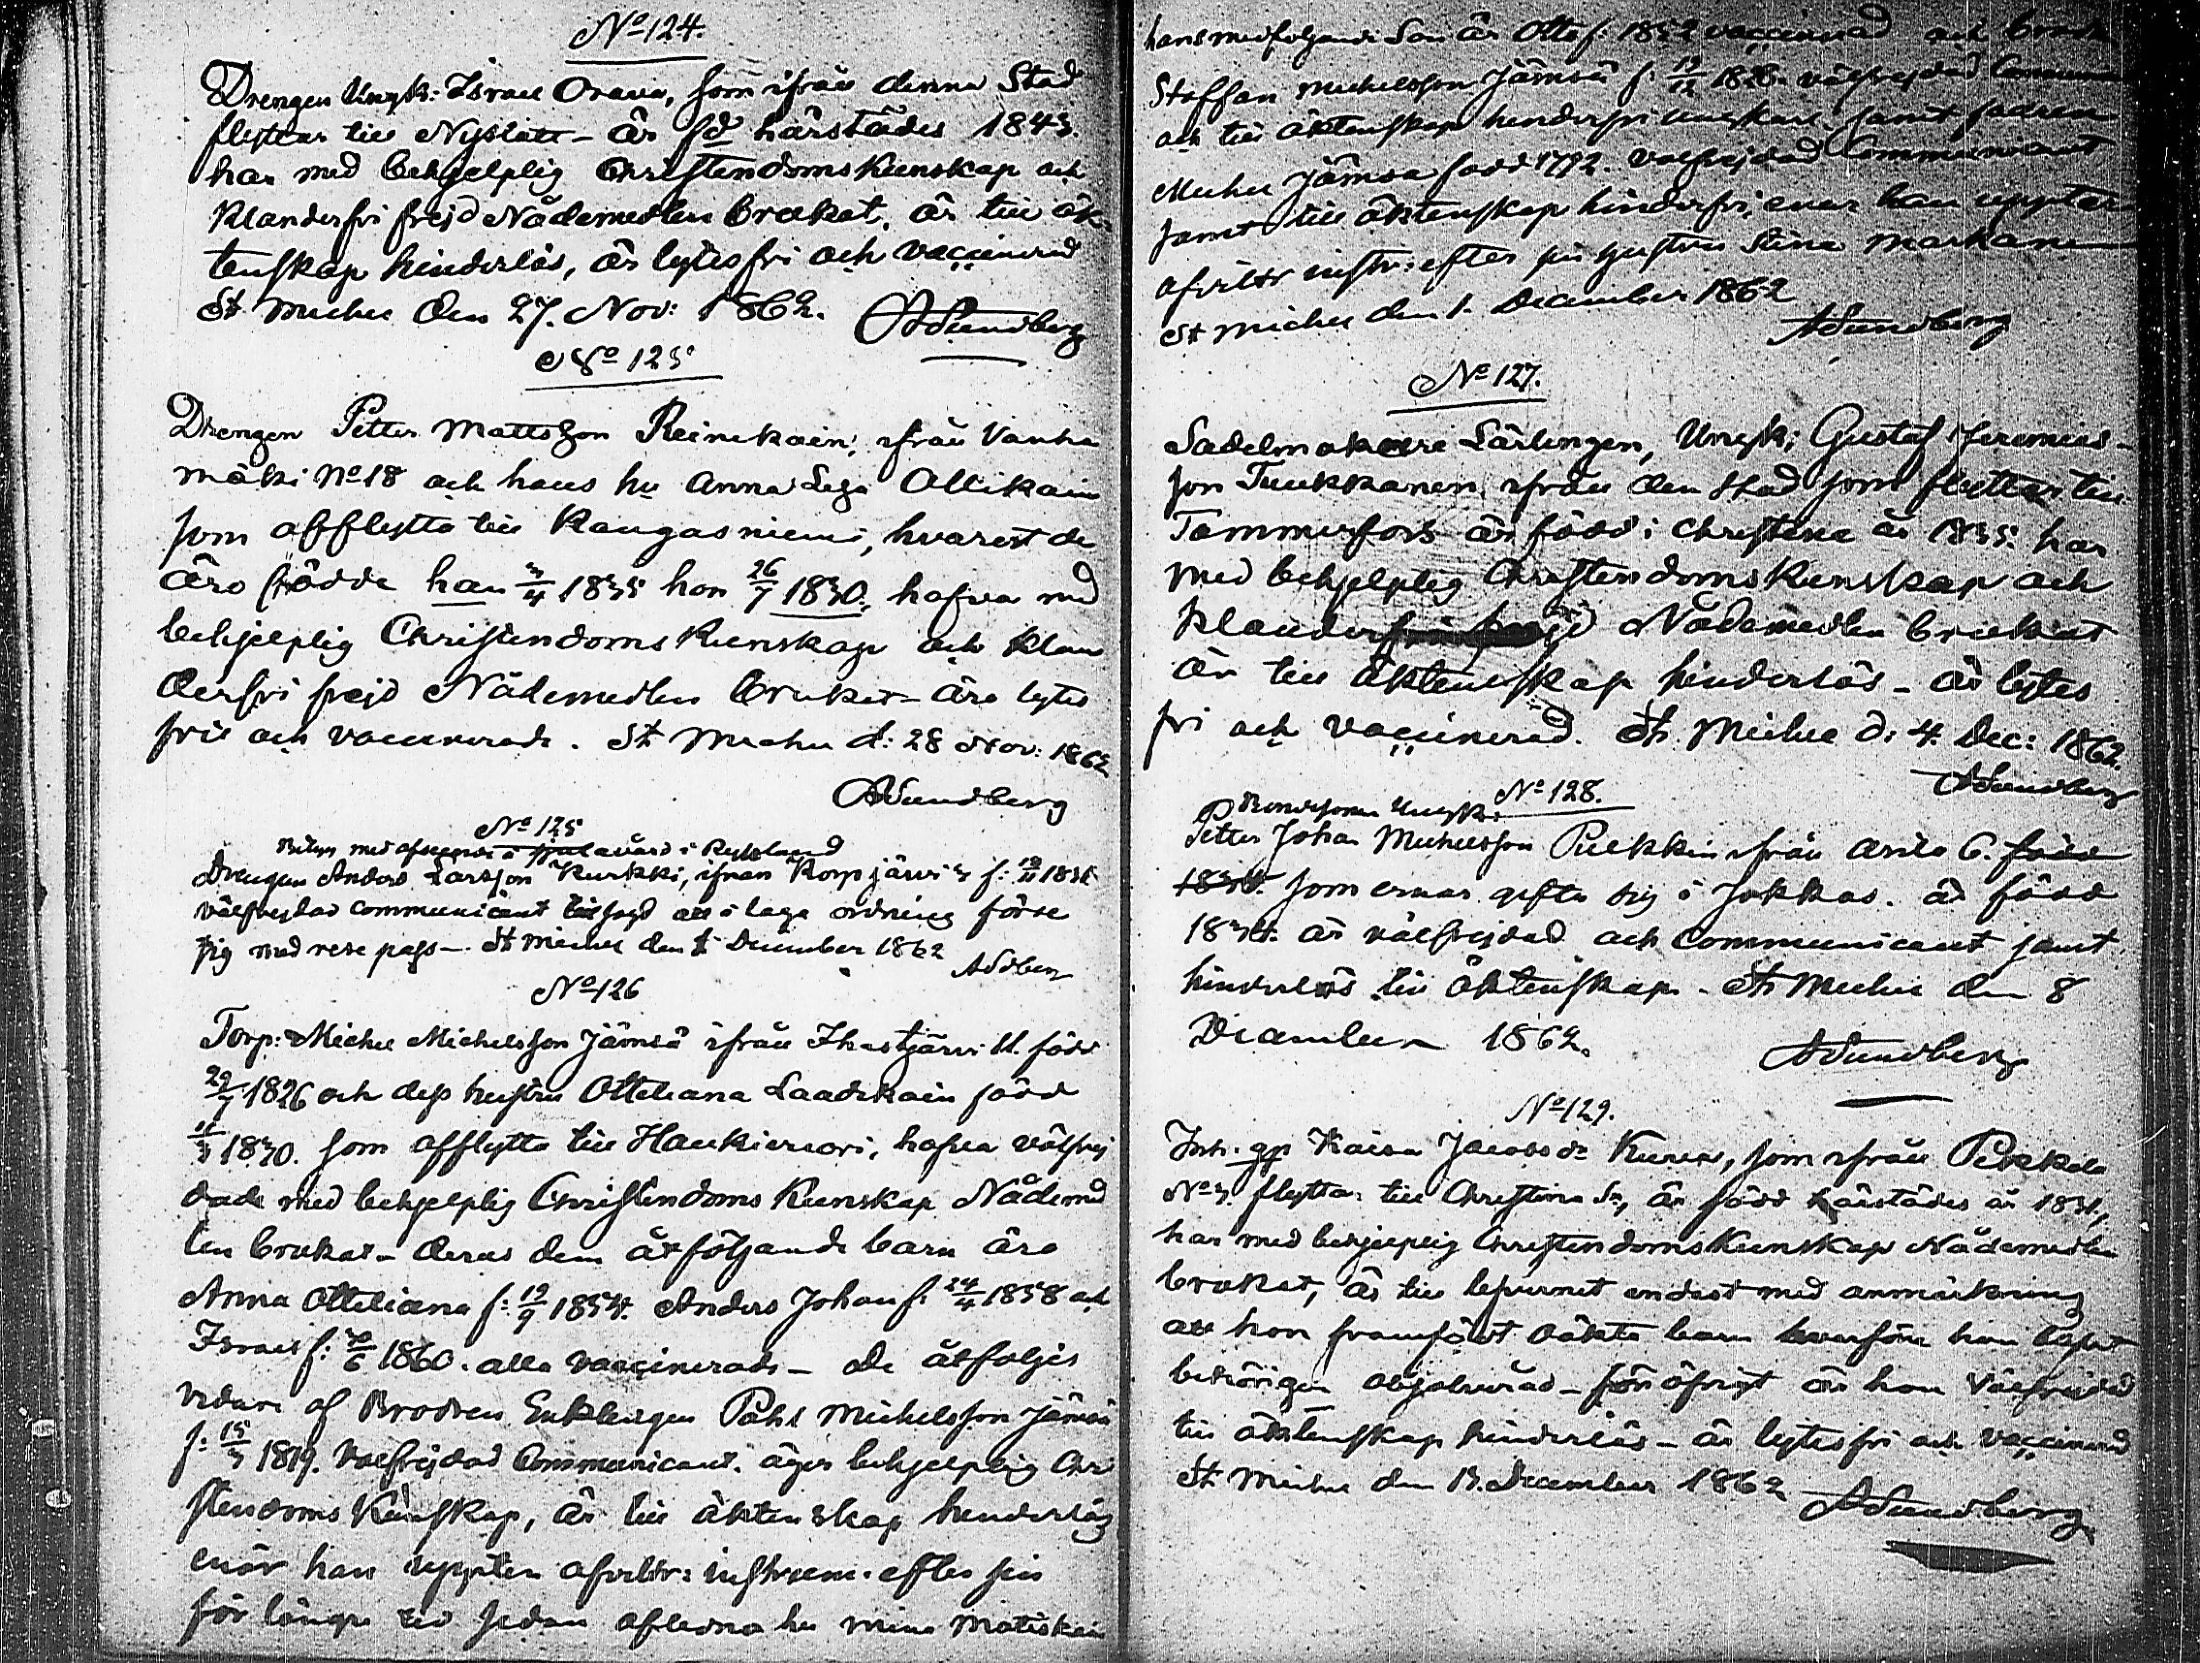 No 124.
Drengen Ungk: Israel Orava, som ifrån denna Stad
flyttar till Nyslott - är fd härstädes 1843.
har med behjelplig Christendomskunskap och
klanderfri frejd Nådemedlen brukat, är till äk-
tenskap hinderlös, är lytesfri och vaccinerad
St Michel den 27. Nov: 1862. ASundberg
No 125
Drengen Petter Mattsson Reinikain, ifrån Vanha
mäki No 18 och hans hu Anna Lisa Ollikain
som afflytta till Kangasniemi, hvarest de
äro födde han 3/4 1835 hon 26/7 1830, hafva med
behjelplig Christendoms kunskap och klan
derfri frejd Nådemedlen brukat - äro lytes
frie och vaccinerade. St Michel d: 28 Nov: 1862
ASundberg
No 125
Betyg med afseende å i Ryssland
Drengen Anders Larsson Kurkki, ifrån Korpjärvi 3 f: 1831
välfrejdad communicant tillsagd att i laga ordning förse
sig med rese pass - St Michel den 1 December 1862 ASdberg
No 126
Torp: Michel Michelsson Jämsä ifrån Ihastjärvi 11. född
29/7 1826 och dess hustru Otteliana Laadikain född
1830. som afflytta till Haukivuori, hafva välfrej
dade med behjelplig Christendoms Kunskap Nådemed
len brukat - deras dem åtföljande barn äro
Anna Otteliana f: 19/9 1854. Anders Johan f. 24/4 1858 och
Israel f: 1860. alla vaccinerade - de åtföljes
vidare af Brodren Enklingen Påhl Michelsson Jämsä
f: 15/3 1819. välfrejdad Communicant. äger behjelplig Chri
stendoms Kunskap, är till äktenskap hinderlös
enär han upptér afvittr: instrum. efter sin
för länge sedan aflidna hu Mina Matiskain
hans medföljande Son är Otto f: 1852 vaccinerad och brodr
Staffan Michelsson Jämsä f: 13/12 1828. välfrejdad Commun
och till äktenskap hinderfri ungkarl. samt fadren
Michel Jämsä född 1792. välfrejdad Communicant
samt till äktenskap hinderfri, enär han uppter
afvittr instr: efter sin hustru Stina Markan
St Michel den 1. December 1862
ASundberg
No 127.
Sadelmakare Lärlingen, Ungk: Gustaf Jeremias-
son Tuukkanen, ifrån den stad som flyttar till
Tammerfors är född i Christina år 1835. har
med behjelplig Christendomskunskap och
klanderfri frejd Nådemedlen brukat
är till äktenskap hinderlös - är lytes
fri och vaccinerad. St. Michel d: 4. Dec: 1862.
ASundberg
No 128.
Bondesonen Ungk:
Petter Johan Michelsson Pulkkin ifrån Arila 6. född
1834. som ernar gifta sig i Jokkas. är född
1834. är välfrejdad och Communicant samt
hinderlös till äktenskap - St Michel den 8
December 1862.
ASundberg
No 129.
Inh. qp Kaisa Jacobsdr Kurva, som ifrån Pekkola
No 3. flyttar till Christina Sn, är född härstädes år 1831,
har med behjelplig Christendomskunskap Nådemedlen
brukat, är till lefvernet endast med anmärkning
att hon framfödt oäkta barn hvarföre hon löst
behörigen absolverad - för öfrigt är hon välfrejdad
till äktenskap hinderlös - är lytesfri och vaccinerad
St Michel den 13. December 1862 ASundberg